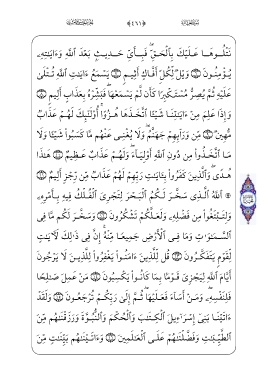 نَتْلُوهَا عَلَيْكَ بِالْحَقِّ فَبِأَيِّ حَدِيثٍ بَعْدَ اللَّهِ وَءَايَٰتِهِۦ
يُؤْمِنُونَ ۝ وَيْلٌ لِّكُلِّ أَفَّاكٍ أَثِيمٍ ۝ يَسْمَعُ ءَايَٰتِ اللَّهِ تُتْلَىٰ
عَلَيْهِ ثُمَّ يُصِرُّ مُسْتَكْبِرًا كَأَن لَّمْ يَسْمَعْهَا فَبَشِّرْهُ بِعَذَابٍ أَلِيمٍ ۝
وَإِذَا عَلِمَ مِنْ ءَايَٰتِنَا شَيْئًا اتَّخَذَهَا هُزُوًا أُولَٰئِكَ لَهُمْ عَذَابٌ
مُّهِينٌ ۝ مِّن وَرَائِهِمْ جَهَنَّمُ وَلَا يُغْنِي عَنْهُم مَّا كَسَبُوا شَيْئًا وَلَا
مَا اتَّخَذُوا مِن دُونِ اللَّهِ أَوْلِيَاءَ وَلَهُمْ عَذَابٌ عَظِيمٌ ۝ هَٰذَا
هُدًى وَالَّذِينَ كَفَرُوا بِـَٔايَٰتِ رَبِّهِمْ لَهُمْ عَذَابٌ مِّن رِّجْزٍ أَلِيمٌ ۝
۞ اللَّهُ الَّذِي سَخَّرَ لَكُمُ الْبَحْرَ لِتَجْرِيَ الْفُلْكُ فِيهِ بِأَمْرِهِۦ
وَلِتَبْتَغُوا مِن فَضْلِهِۦ وَلَعَلَّكُمْ تَشْكُرُونَ ۝ وَسَخَّرَ لَكُم مَّا فِي
السَّمَٰوَٰتِ وَمَا فِي الْأَرْضِ جَمِيعًا مِّنْهُ إِنَّ فِي ذَٰلِكَ لَءَايَٰتٍ
لِّقَوْمٍ يَتَفَكَّرُونَ ۝ قُل لِّلَّذِينَ ءَامَنُوا يَغْفِرُوا لِلَّذِينَ لَا يَرْجُونَ
أَيَّامَ اللَّهِ لِيَجْزِيَ قَوْمًا بِمَا كَانُوا يَكْسِبُونَ ۝ مَنْ عَمِلَ صَٰلِحًا
فَلِنَفْسِهِۦ وَمَنْ أَسَاءَ فَعَلَيْهَا ثُمَّ إِلَىٰ رَبِّكُمْ تُرْجَعُونَ ۝ وَلَقَدْ
ءَاتَيْنَا بَنِي إِسْرَٰءِيلَ الْكِتَٰبَ وَالْحُكْمَ وَالنُّبُوَّةَ وَرَزَقْنَٰهُم مِّنَ
الطَّيِّبَٰتِ وَفَضَّلْنَٰهُمْ عَلَى الْعَٰلَمِينَ ۝ وَءَاتَيْنَٰهُم بَيِّنَٰتٍ مِّنَ